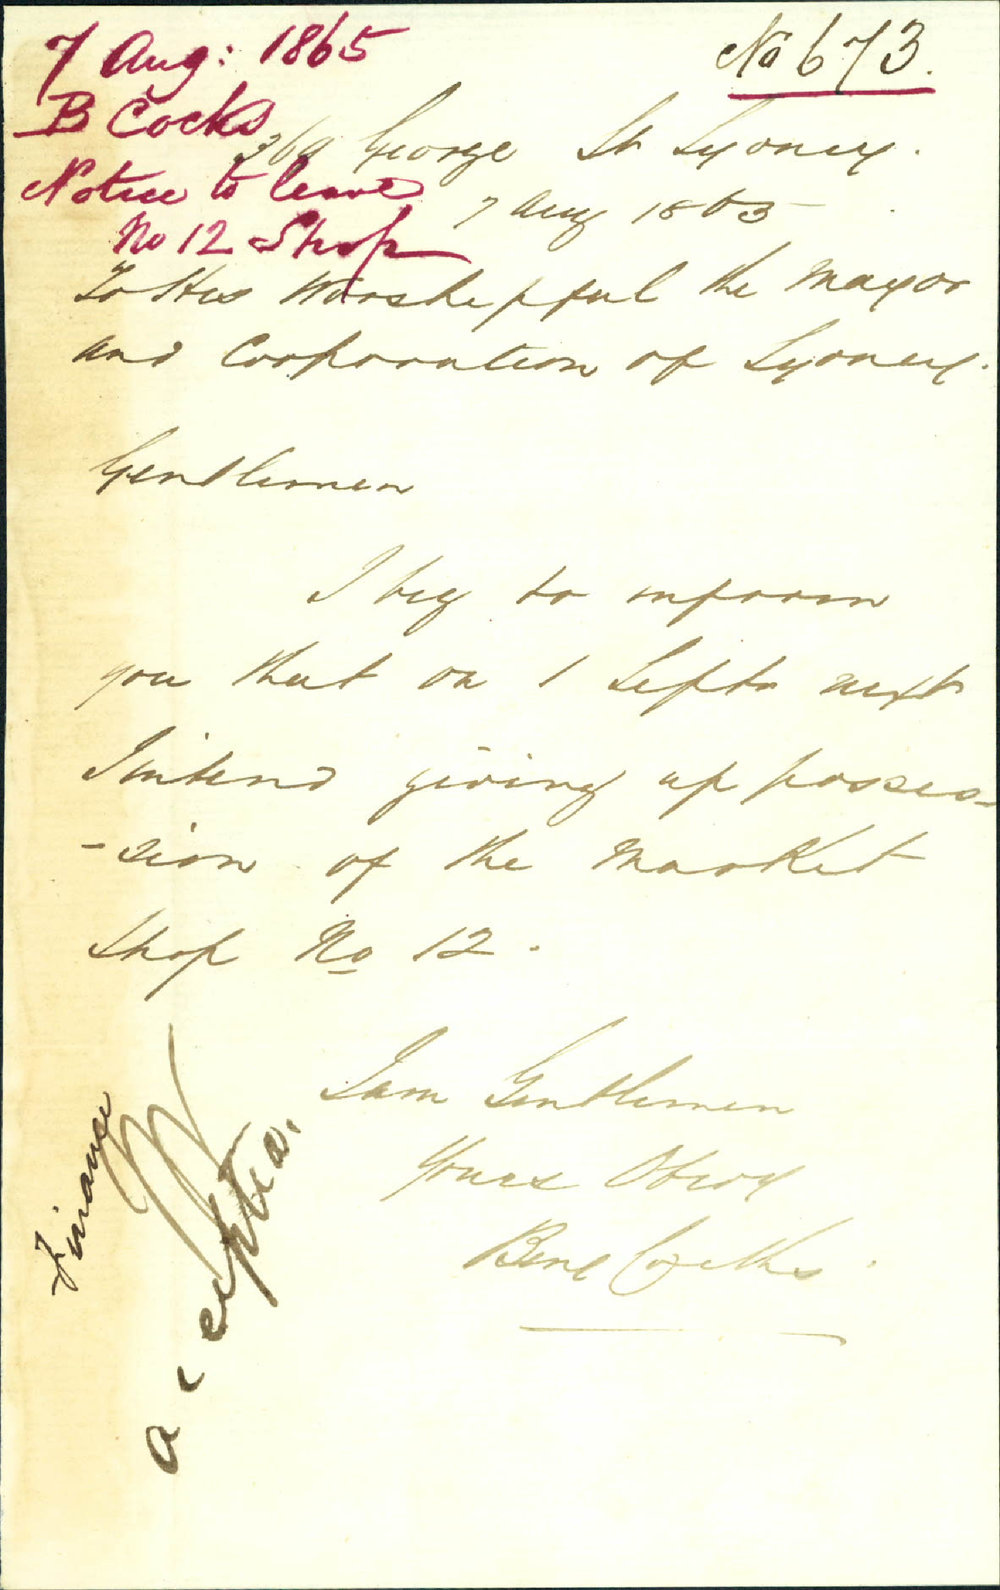 7 Aug: 1865
No 673.
B Cocks
369 George St Sydney.
Notice to leave
7 Aug 1865
No 12 Shop
To His Worshipful the Mayor
and Corporation of Sydney.
Gentlemen
I beg to inform
you that on 1 Septr next
I intend giving up posses-
-sion of the Market
Shop No 12.
I am Gentlemen
Yours Obedy
Benj Cocks
Finance
accepted.